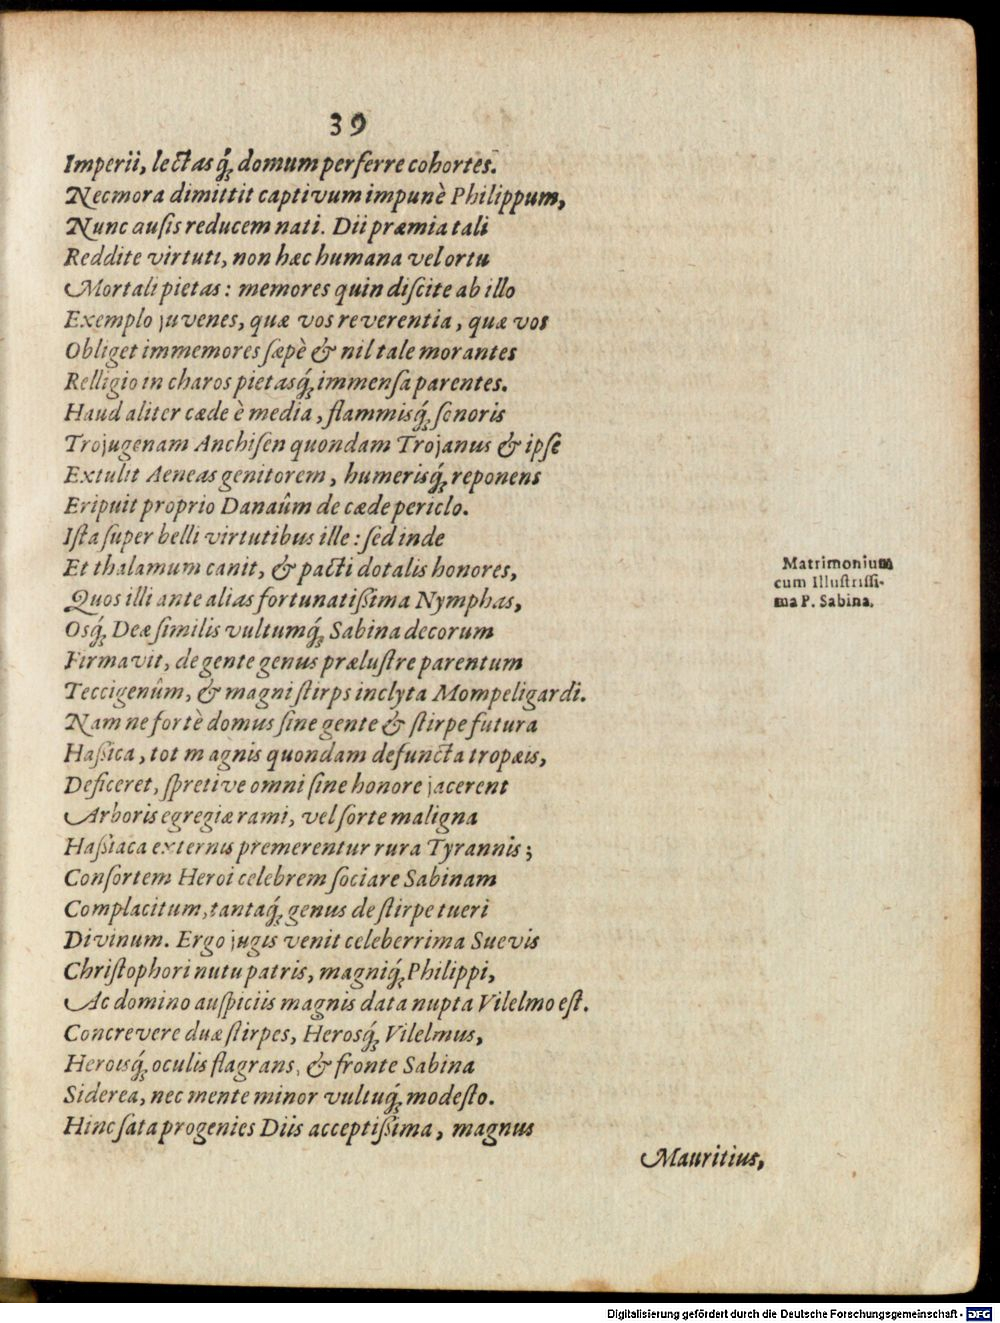 39
Imperii, lectasq́; domum perferre cohortes.
Nec mora dimittit captivum impunè Philippum,
Nunc ausis reducem nati. Dii præmia tali
Reddite virtuti, non hæc humana vel ortu
Mortali pietas: memores quin discite ab illo
Exemplo juvenes, quæ vos reverentia, quæ vos
Obliget immemores sæpè & nil tale morantes
Relligio in charos pietasq́; immensa parentes.
Haud aliter cæde è media, flammisq́; senoris
Trojugenam Anchisen quondam Trojanus & ipse
Extulit Aeneas genitorem, humerisq́; reponens
Eripuit proprio Danaûm de cæde periclo.
Ista super belli virtutibus ille: sed inde
Et thalamum canit, & pacti dotalis honores,
Quos illi ante alias fortunatißima Nymphas,
Osq́; Deæ similis vultumq́; Sabina decorum
Firmavit, de gente genus prælustre parentum
Teccigenûm, & magni stirps inclyta Mompeligardi.
Nam ne fortè domus sine gente & stirpe futura
Haßica, tot magnis quondam defuncta tropæis,
Deficeret, spretive omni sine honore jacerent
Arboris egregiæ rami, vel sorte maligna
Haßiaca externis premerentur rura Tyrannis;
Consortem Heroi celebrem sociare Sabinam
Complacitum, tantaq́; genus de stirpe tueri
Divinum. Ergo jugis venit celeberrima Suevis
Christophori nutu patris, magniq́; Philippi,
Ac domino auspiciis magnis data nupta Vilelmo est.
Concrevere duæ stirpes, Herosq́; Vilelmus,
Heroisq́; oculis flagrans, & fronte Sabina
Siderea, nec mente minor vultuq́; modesto.
Hinc sata progenies Diis acceptißima, magnus
Mauritius,
Matrimonium
cum Illustrissi-
ma P. Sabina.
Digitalisierung gefördert durch die Deutsche Forschungsgemeinschaft - DFG